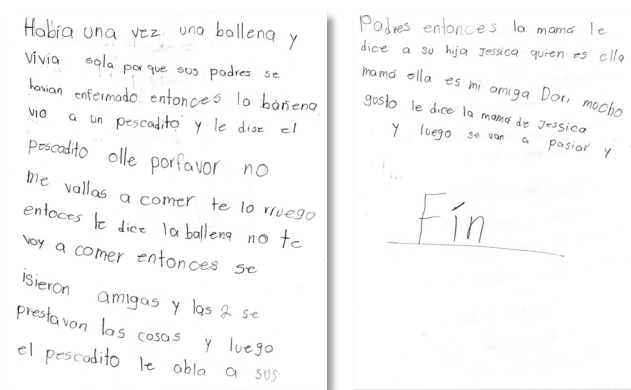 Había una vez una ballena y
vivia sola porque sus padres se
havian enfermado entonces la banena
vio a un pescadito y le dise el
pescadito olle porfavor no
me vallas a comer te lo rruego
entoces le dice la ballena no te
voy a comer entonces se
isieron amigas y las 2 se
prestavan las cosas y luego
el pescadito le abla a sus
Padres entonces la mamá le
dice a su hija Jessica quien es ella
mamá ella es mi amiga Dori mucho
gusto le dice la mamá de Jessica
y luego se van a pasiar y
Fín